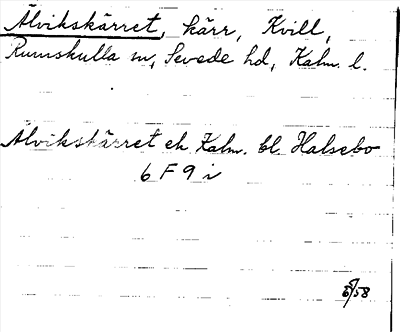 Älvikskärret, kärr, Kvill,
Rumskulla sn, Sevede hd, Kalm. l.
Älvikskärret ek Kalm. bl. Halsebo
6 F 9 i
58